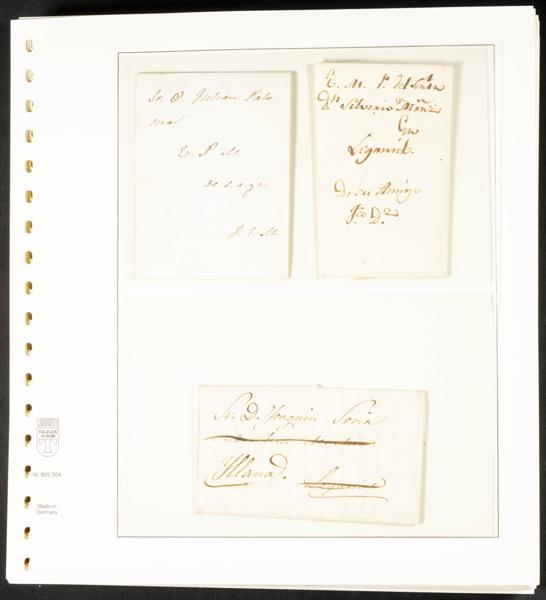 Sr. D. Julian Palo
mar
E. P. M.
de s. ago.
J. S. M.
E. M. P. del Señor
Dn. Silverio Muñoz
En
Leganiel.
De su Amigo
Fco. D.
Sr. D. Joaquin Soria
Yllana.
Leganiel
FALZLOS
ALBUM
Nr. 802 504
Made in
Germany